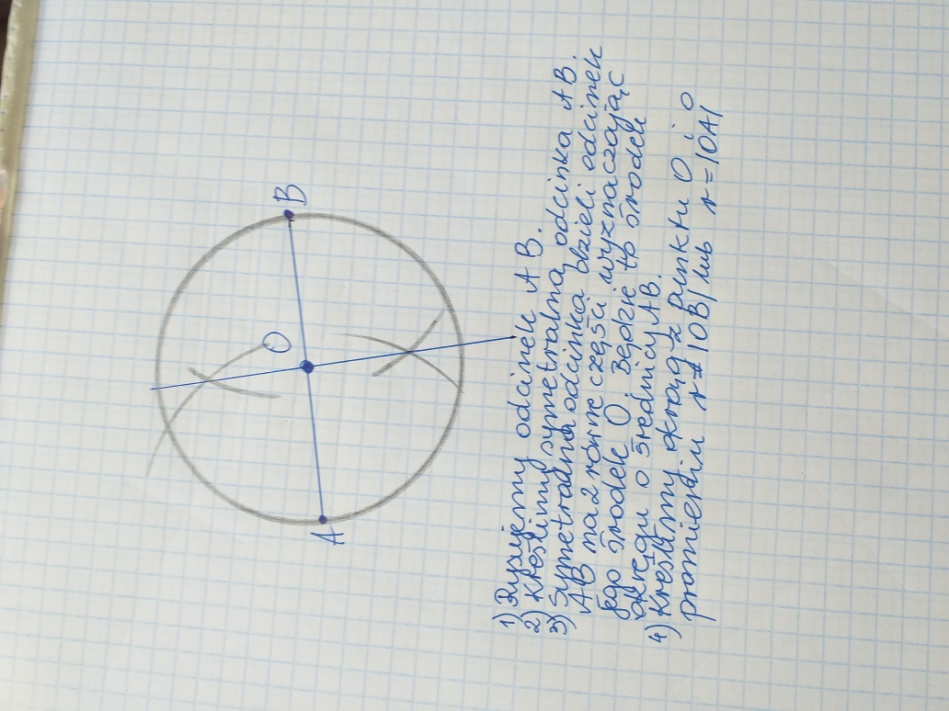 B
O
A
1) Rysujemy odcinek AB.
2) Kreślimy symetralną odcinka AB.
3) Symetralna odcinka dzieli odcinek
AB na 2 równe części wyznaczając
jego środek O. Będzie to środek
okręgu o średnicy AB.
4) Kreślimy okrąg z punktu O i o
promieniu r=|OB| lub r=|OA|